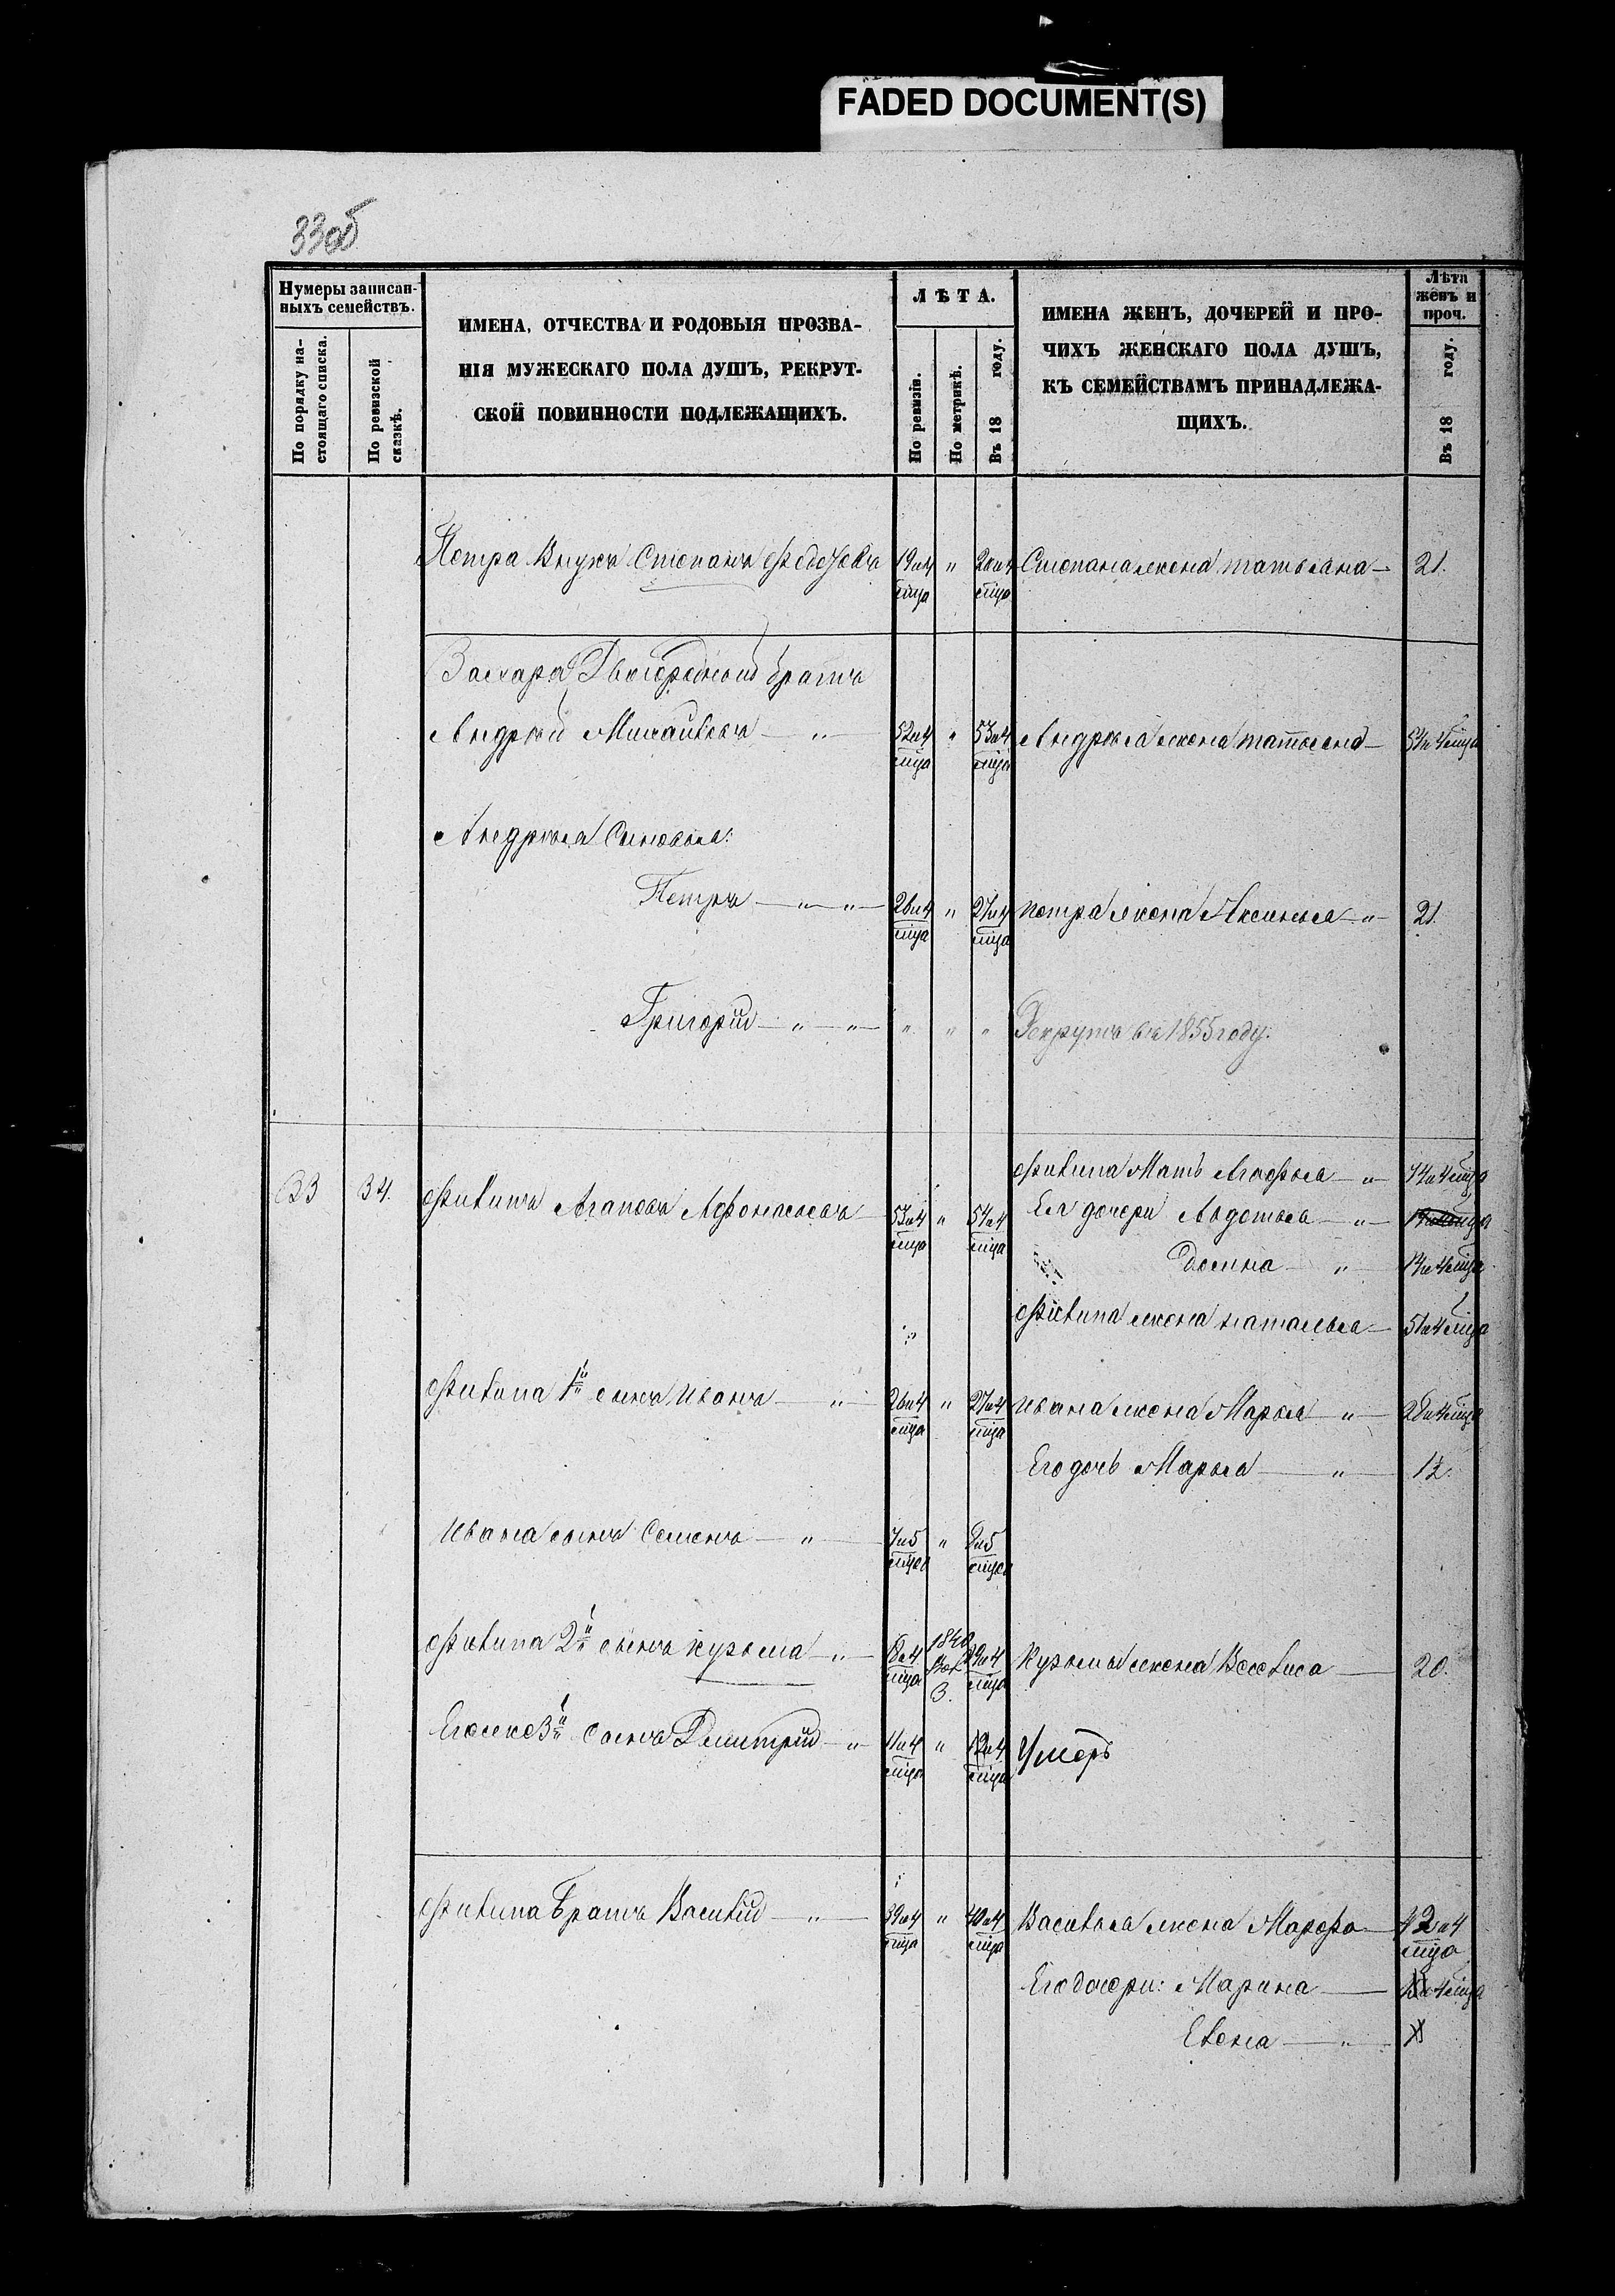 FADED DOCUMENT(S)
33об
Нумеры записан-
ныхъ семействъ.
По порядку на-
стоящаго списка.
По ревизской
сказкѣ.
ИМЕНА, ОТЧЕСТВА И РОДОВЫЯ ПРОЗВА-
НІЯ МУЖЕСКАГО ПОЛА ДУШЪ, РЕКРУТ-
СКОЙ ПОВИННОСТИ ПОДЛЕЖАЩИХЪ.
ЛѢТА.
По ревизіи.
По метрикѣ.
Въ 18 году.
ИМЕНА ЖЕНЪ, ДОЧЕРЕЙ И ПРО-
ЧИХЪ ЖЕНСКАГО ПОЛА ДУШЪ,
КЪ СЕМЕЙСТВАМЪ ПРИНАДЛЕЖА-
ЩИХЪ.
Лѣта
женъ и
проч.
Въ 18 году.
Петра Внукъ Степанъ 19 и 4 мца " 20 и 4 мца Степана жена татьяна — 21.
Захара Двоюродный братъ
Андрей Михайловъ — " — 52 и 4 мца " 53 и 4 мца Андрея жена татьяна — 51 и 4 мца
Андрея Сыновья:
Петръ — " — " — 26 и 4 мца " 27 и 4 мца петра жена Аксинья — " — 21.
Григорій — " — " — " " " Рекрутъ въ 1855 году.
33 34. Филипъ Агаповъ 53 и 4 мца " 54 и 4 мца
Филипа Мать Агафья — " — 74 и 4 мца
Ея дочери Авдотья — " —
— " — 14 и 4 мца
Филипа жена наталья — 51 и 4 мца
Филипа 1й сынъ Иванъ — " — 26 и 4 мца " 27 и 4 мца Ивана жена Марья — " — 28 и 4 мца
Его дочь Марья — " — 12.
Ивана сынъ Семенъ — " — и 5 мцов " 2 и 5 мцов
Филипа 2й сынъ кузьма — " — 18 и 4 мца 1840 3. 19 и 4 мца Кузьмы жена Василиса — 20.
Егоже 3й сынъ Димитрій — " 11 и 4 мца " 12 и 4 мца Умеръ
Филипа Братъ Василій — " — 39 и 4 мца " 40 и 4 мца Василья жена Марфа — 42 и 4 мца
Его дочери: Марина — и 4 мца
Елена — " —